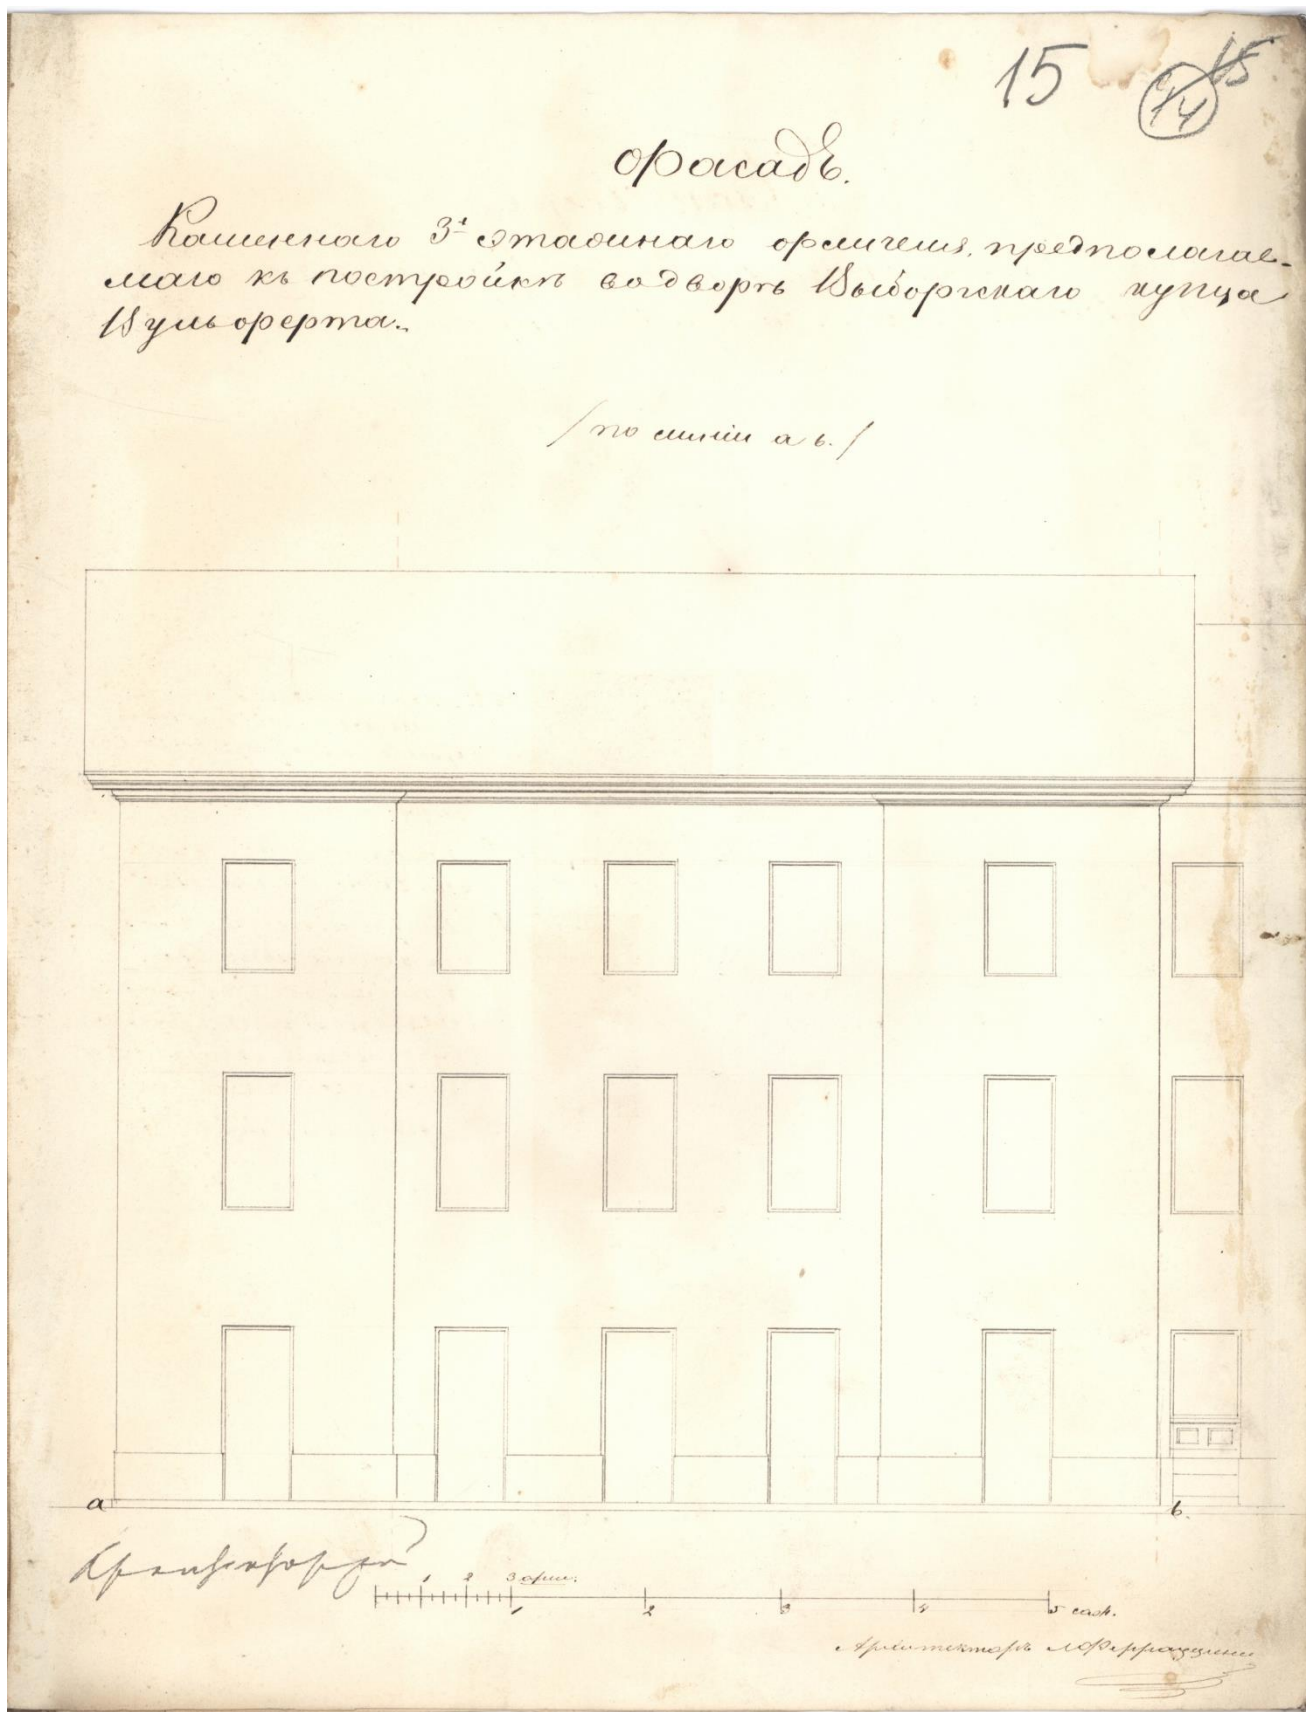 15 15
14
Фасадъ.
Каменнаго 3х этажнаго флигеля, предполагае-
маго къ постройкѣ во дворѣ Выборгскаго купца
Вульферта.
/ по линіи a b. /
a b.
1 2 3 арш.
1 2 3 4 5 саж.
Архитекторъ Л Феррацини